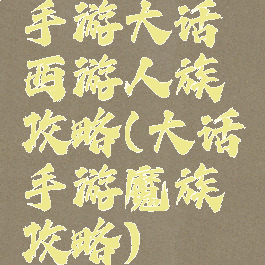 手游大话
西游人族
攻略(大话
手游魔族
攻略)